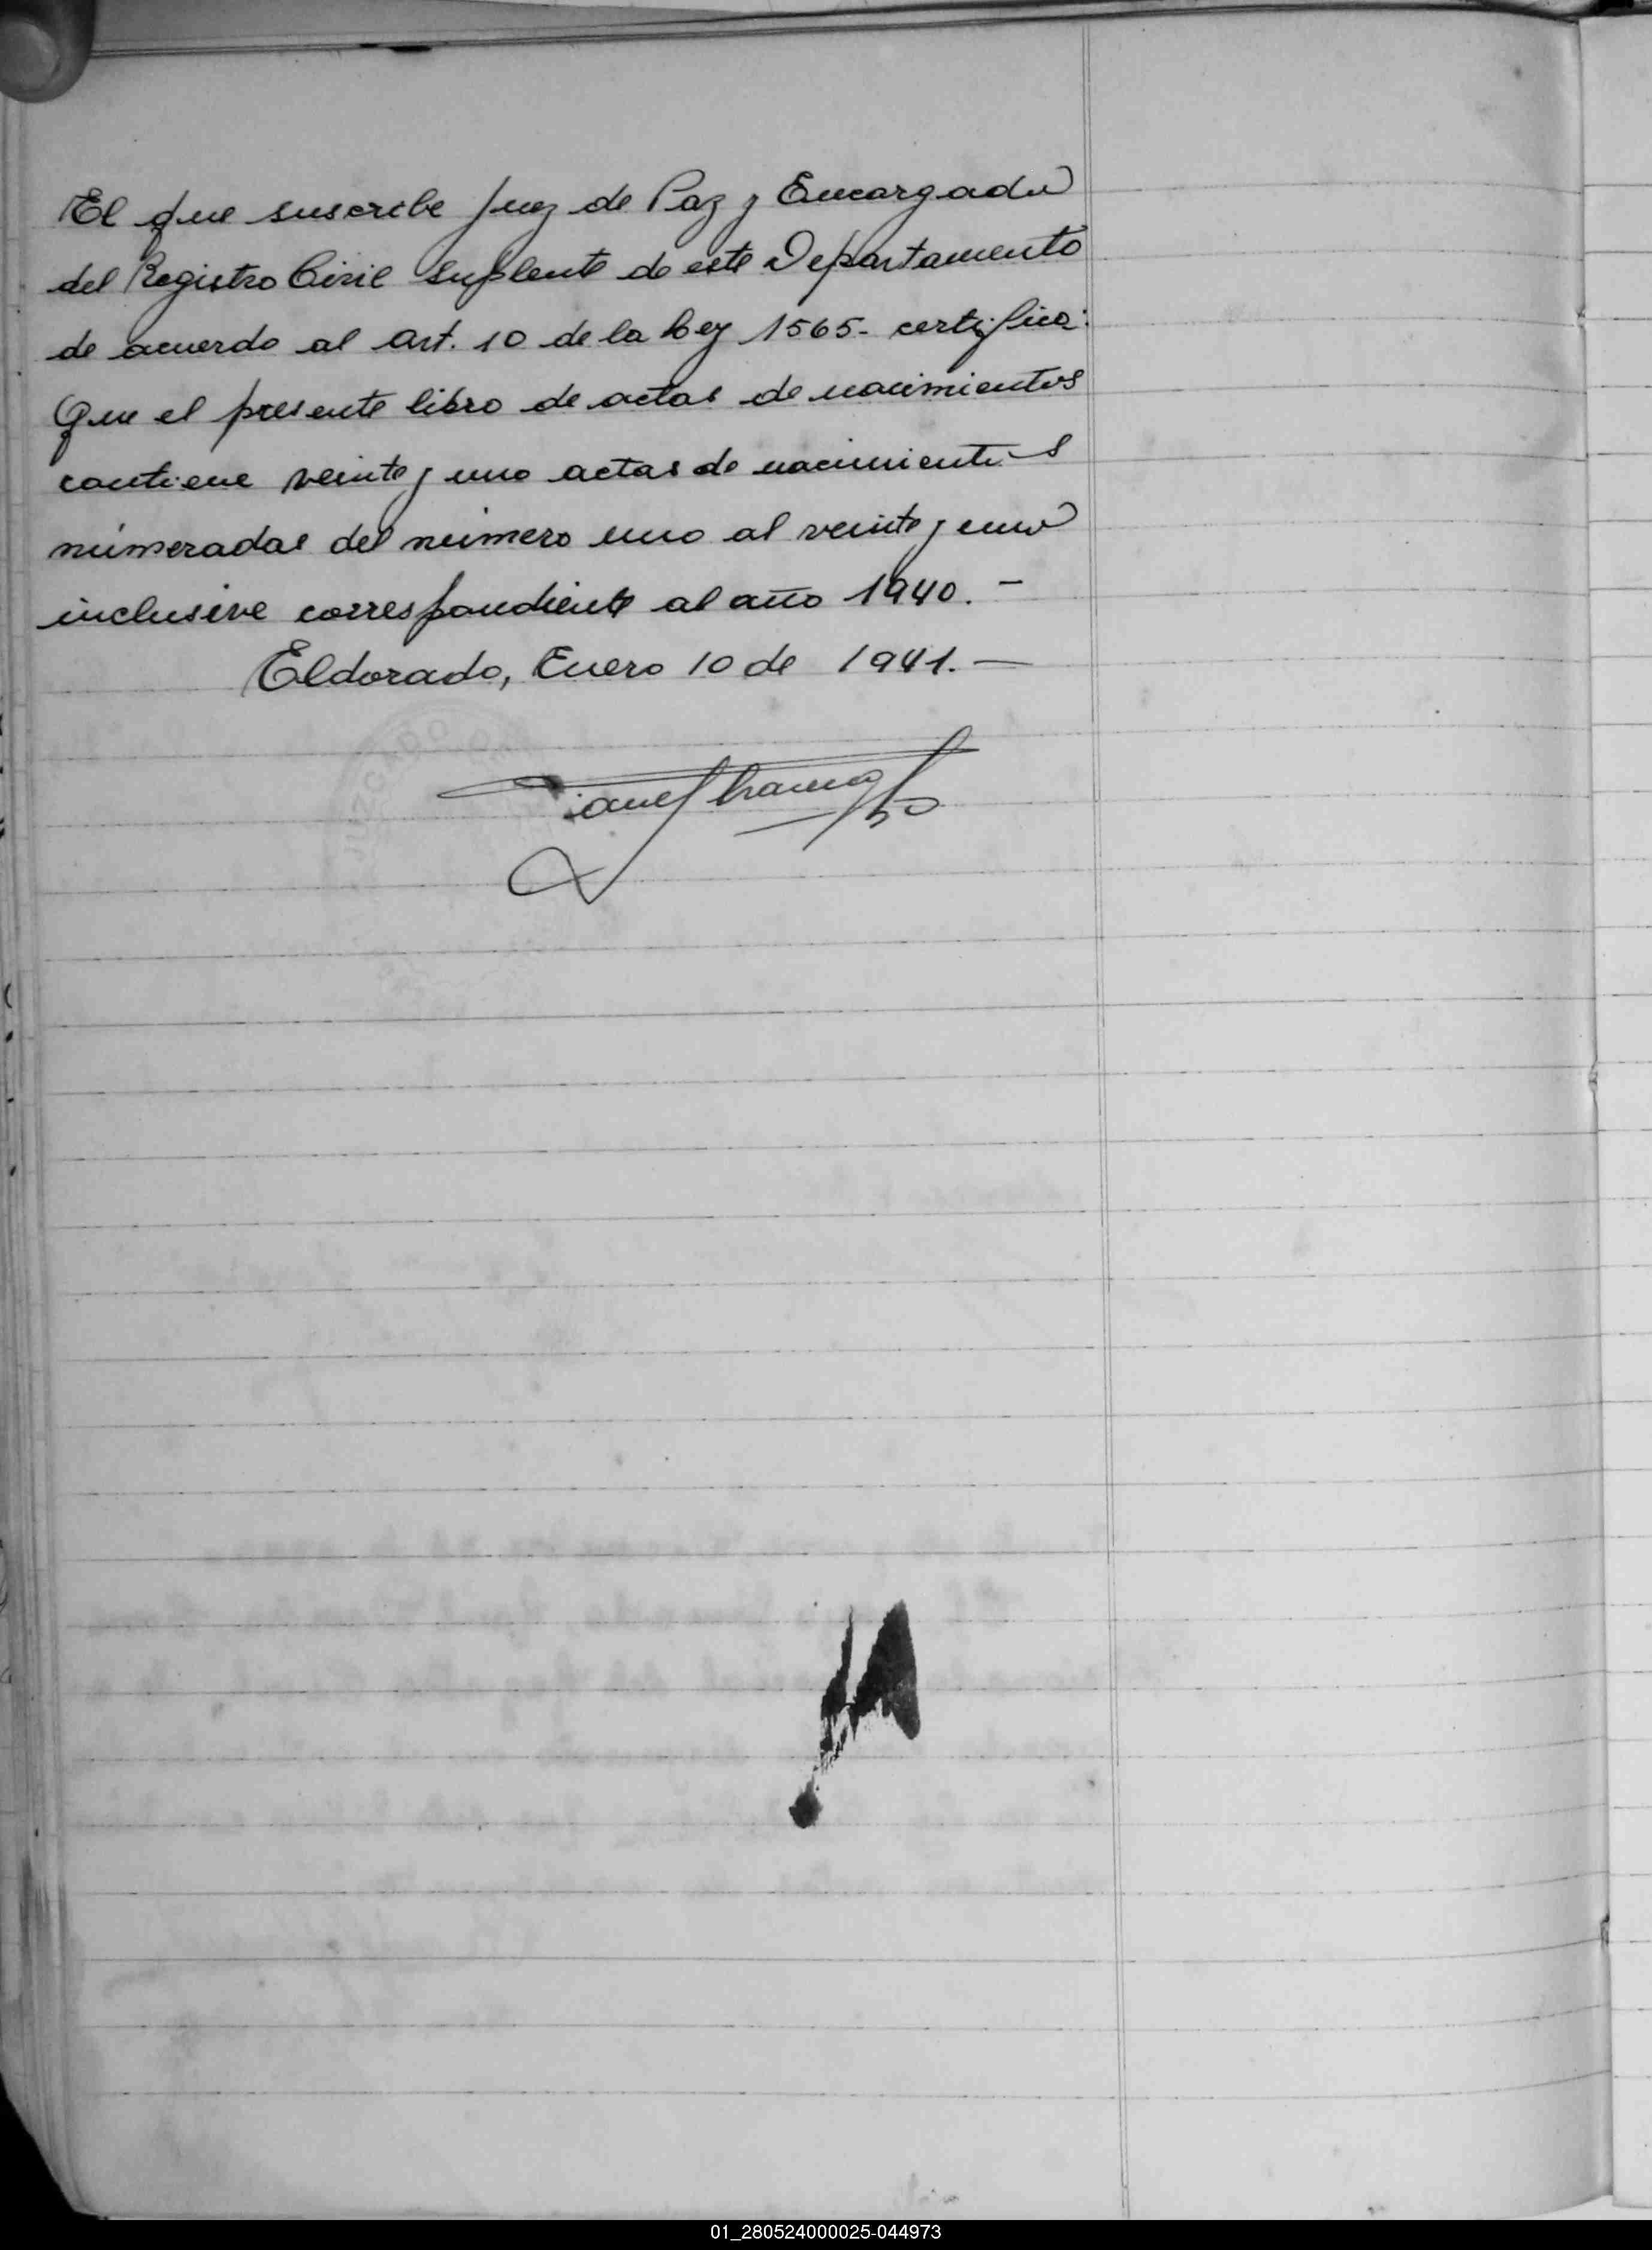 El que suscribe Juez de Paz y Encargado
del Registro Civil suplente de este Departamento
de acuerdo al art. 10 de la Ley 1565- certifica:
Que el presente libro de actas de nacimientos
contiene veinte y uno actas de nacimientos
númeradas del número uno al veinte y uno
inclusive correspondiente al año 1940. -
Eldorado, Enero 10 de 1941. -
JUZGADO DE
01_280524000025-044973